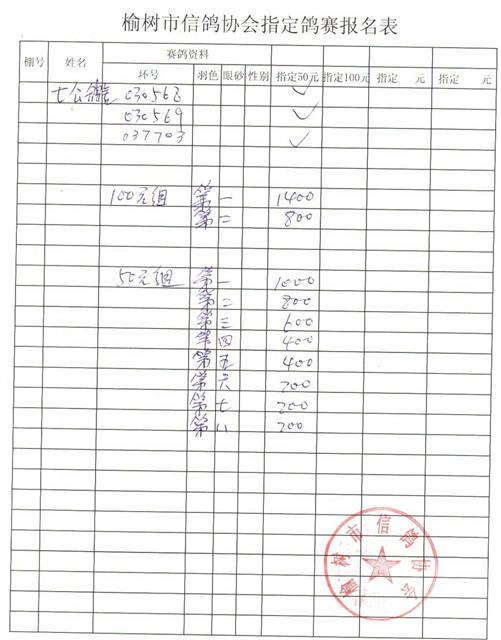 榆树市信鸽协会指定鸽赛报名表
棚号 姓名 赛鸽资料
环号 羽色 眼砂 性别 指定50元 指定100元 指定 元 指定 元
七公 030568 ✓
030569 ✓
037703 ✓
100元组 第一 1400
第二 800
50元组 第一 1000
第二 800
第三 600
第四 400
第五 400
第六 200
第七 200
第八 200
榆树市信鸽协会